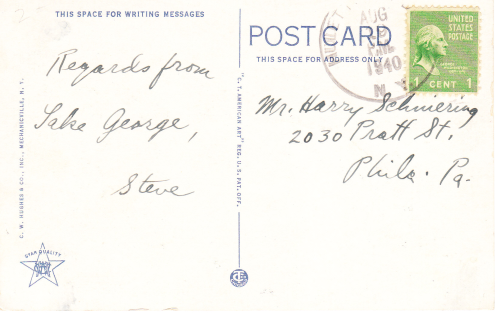 THIS SPACE FOR WRITING MESSAGES
Regards from
Lake George,
Steve
C. W. HUGHES & CO., INC., MECHANICVILLE, N. Y.
STAR QUALITY
"C. T. AMERICAN ART" REG. U.S. PAT. OFF.
POST CARD
THIS SPACE FOR ADDRESS ONLY
AUG
1940
N. Y.
UNITED
STATES
POSTAGE
1 CENT 1
Mr. Harry Schmiering
2030 Pratt St.
Phila. Pa.